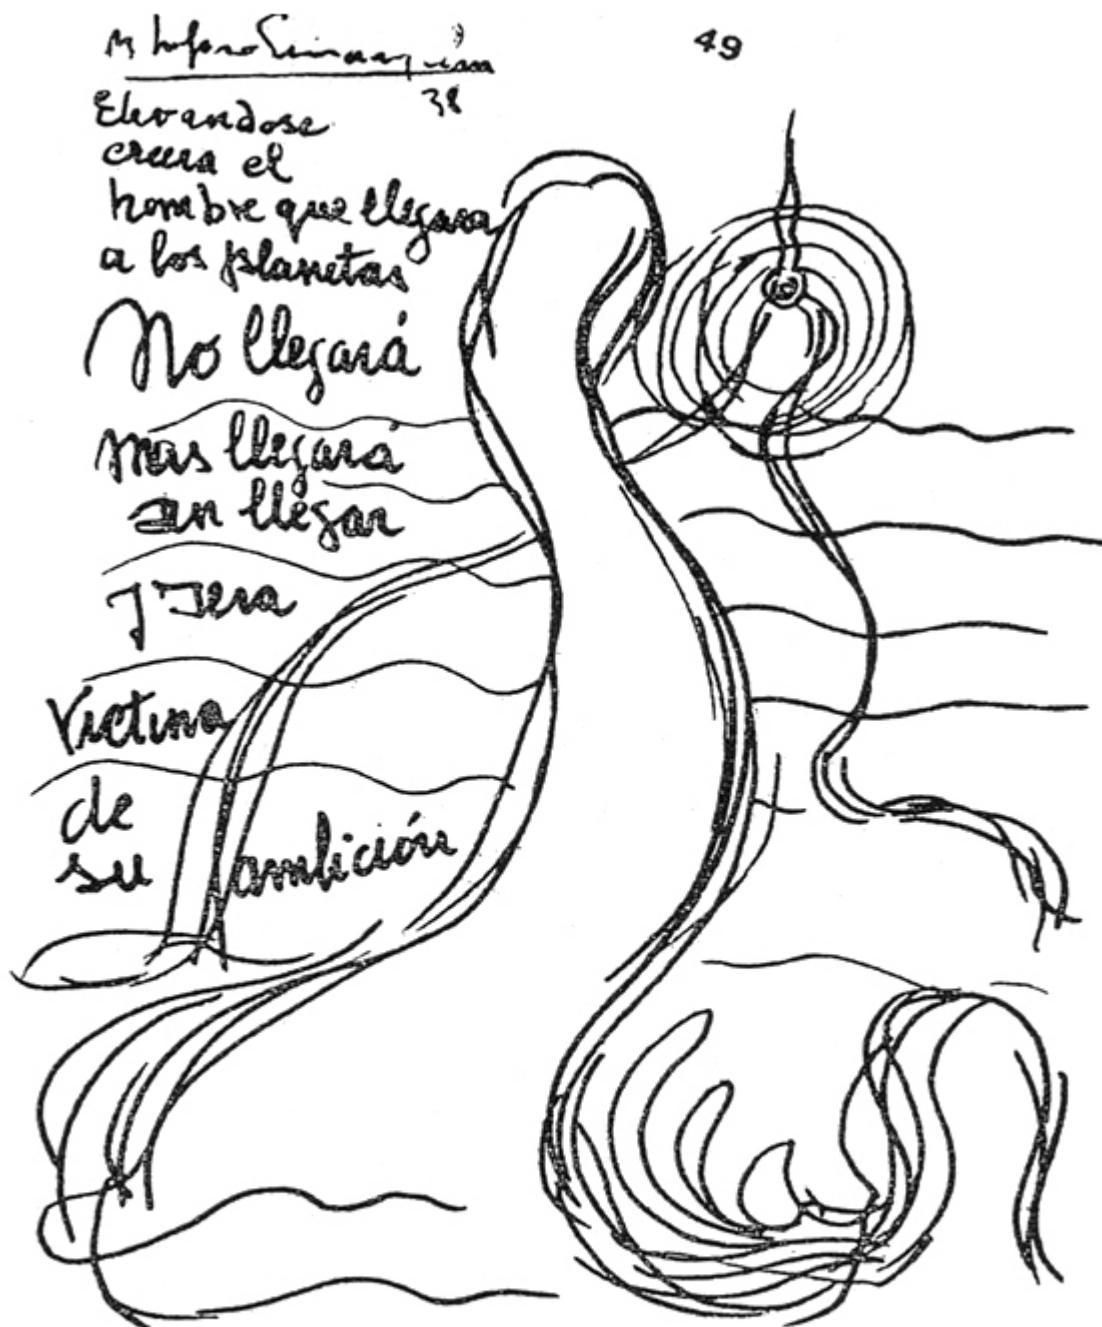 49
38
Elevandose
creera el
hombre que llegara
a los planetas
No llegará
mas llegará
sin llegar
y sera
Victima
de
su ambición